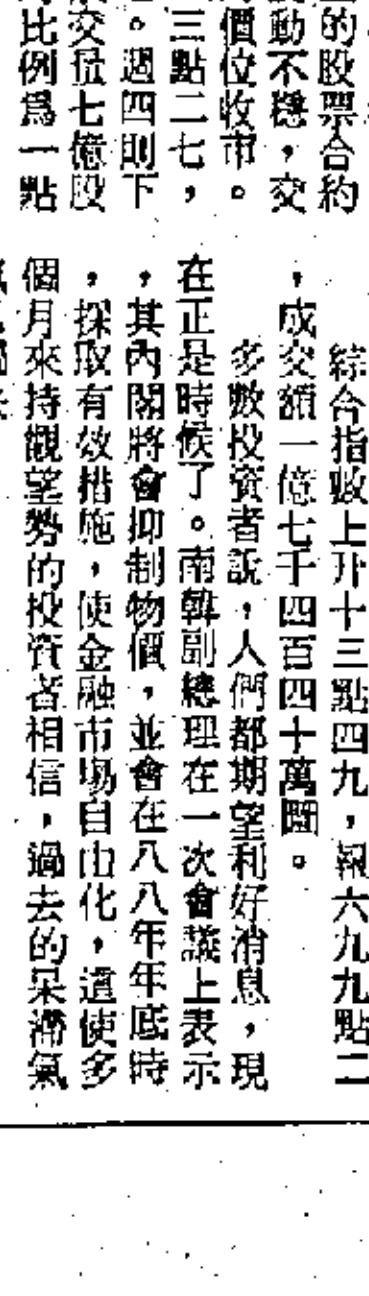 的股票合約
動不穩，交
價位收市。
三點二七，
。週四則下
交投七億股
比例爲一點
綜合指數上升十三點四九，報六九九點二
，成交額一億七千四百四十萬圜。
多數投資者說，人們都期望利好消息，現
在正是時候了。南韓副總理在一次會議上表示
，其內閣將會抑制物價，並會在八八年年底時
，採取有效措施，使金融市場自由化，這使多
個月來持觀望勢的投資者相信，過去的呆滯氣